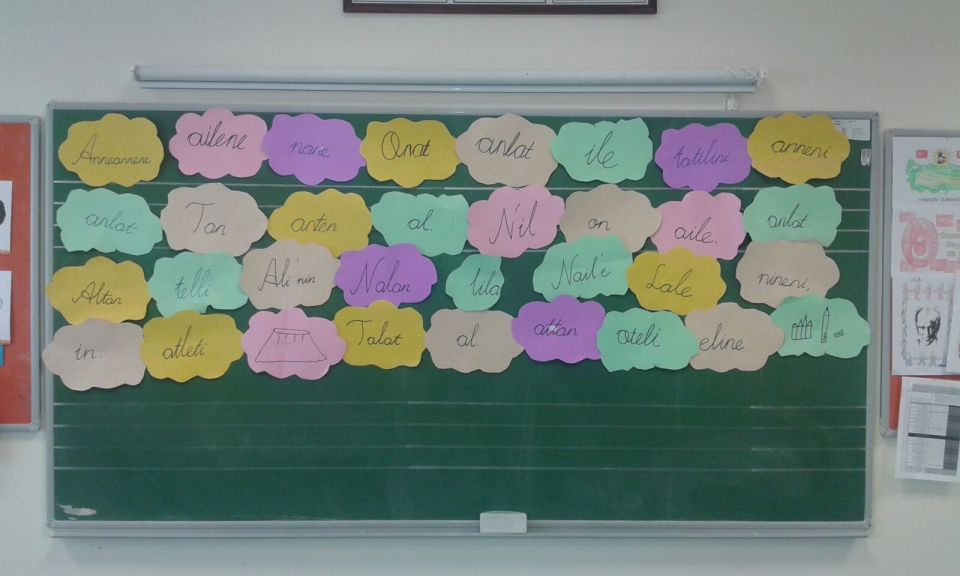 Anneannene ailene nane Onat anlat ile tatilini anneni
anlat Tan anten al. Nil on aile. anlat
Altan telli Ali'nin Nalan lila Nail'e Lale nineni.
in. atleti Talat al. attan oteli eline